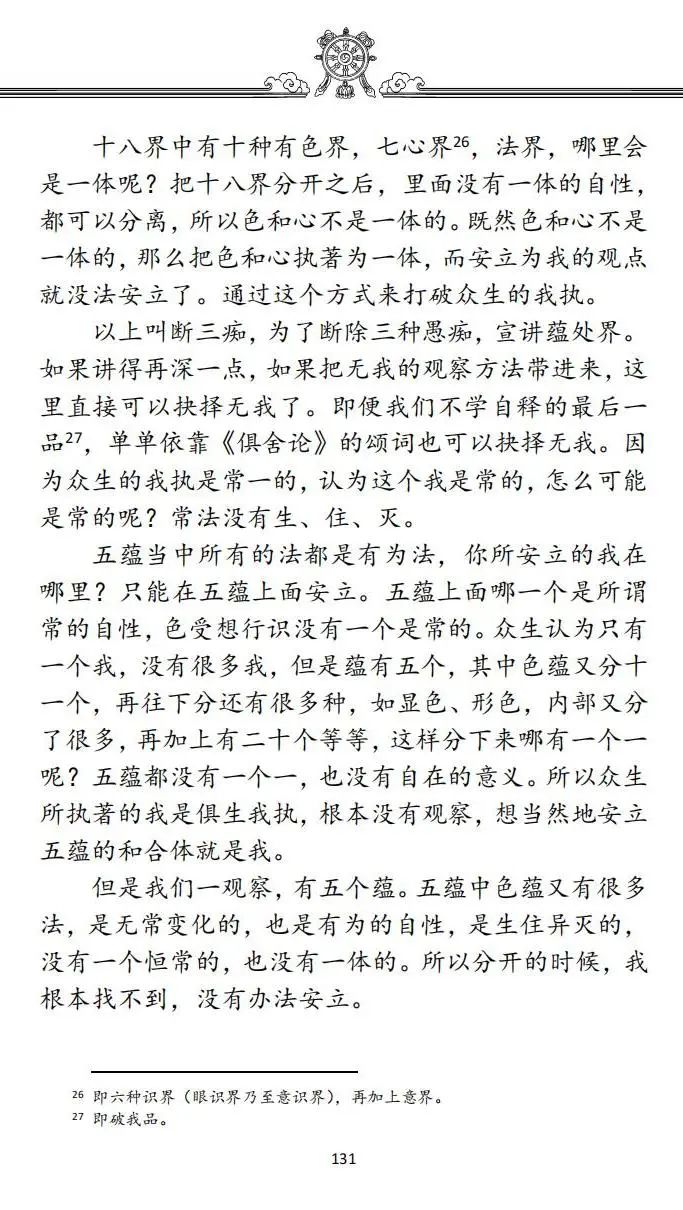 十八界中有十种有色界，七心界26，法界，哪里会
是一体呢？把十八界分开之后，里面没有一体的自性，
都可以分离，所以色和心不是一体的。既然色和心不是
一体的，那么把色和心执著为一体，而安立为我的观点
就没法安立了。通过这个方式来打破众生的我执。
以上叫断三痴，为了断除三种愚痴，宣讲蕴处界。
如果讲得再深一点，如果把无我的观察方法带进来，这
里直接可以抉择无我了。即便我们不学自释的最后一
品27，单单依靠《俱舍论》的颂词也可以抉择无我。因
为众生的我执是常一的，认为这个我是常的，怎么可能
是常的呢？常法没有生、住、灭。
五蕴当中所有的法都是有为法，你所安立的我在
哪里？只能在五蕴上面安立。五蕴上面哪一个是所谓
常的自性，色受想行识没有一个是常的。众生认为只有
一个我，没有很多我，但是蕴有五个，其中色蕴又分十
一个，再往下分还有很多种，如显色、形色，内部又分
了很多，再加上有二十个等等，这样分下来哪有一个一
呢？五蕴都没有一个一，也没有自在的意义。所以众生
所执著的我是俱生我执，根本没有观察，想当然地安立
五蕴的和合体就是我。
但是我们一观察，有五个蕴。五蕴中色蕴又有很多
法，是无常变化的，也是有为的自性，是生住异灭的，
没有一个恒常的，也没有一体的。所以分开的时候，我
根本找不到，没有办法安立。
26 即六种识界（眼识界乃至意识界），再加上意界。
27 即破我品。
131